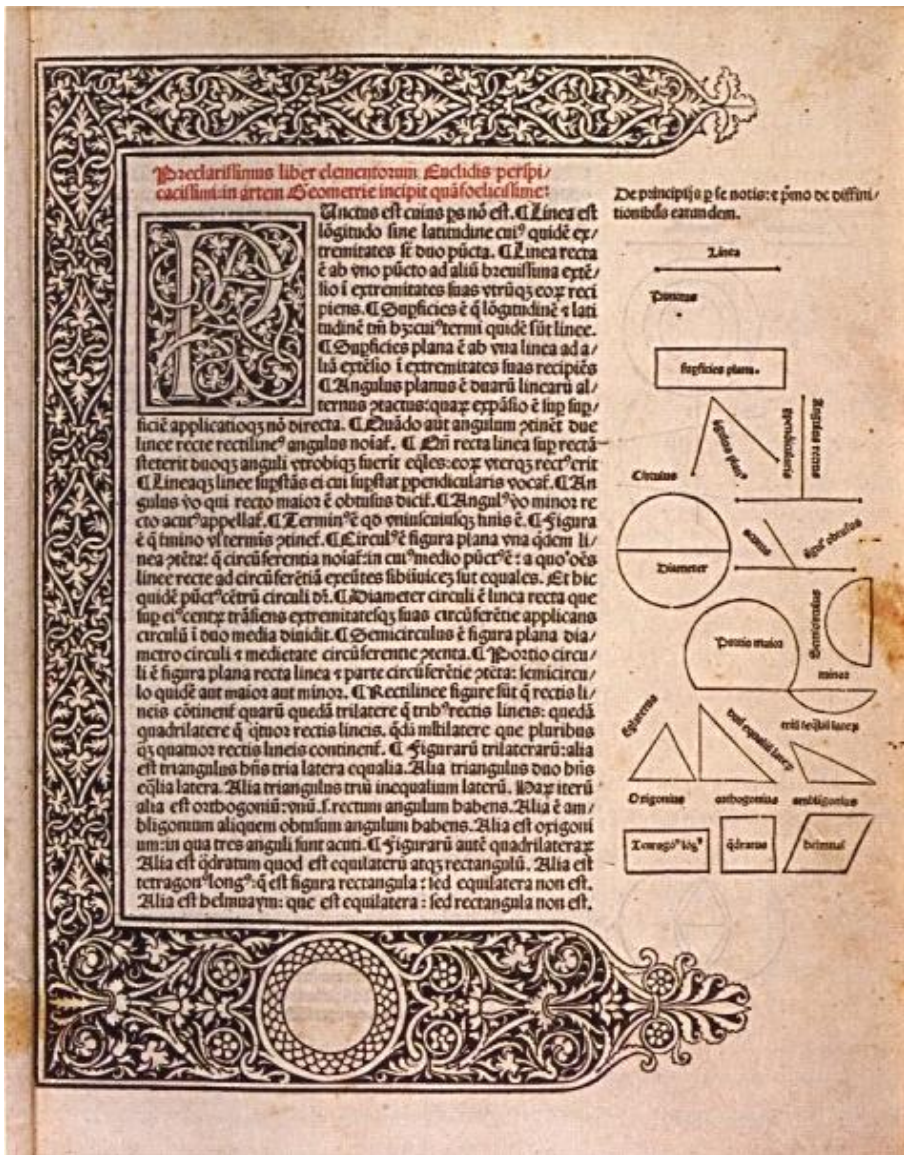 Preclarissimus liber elementorum Euclidis perspi/
cacissimi: in artem Geometrie incipit quãfoelicissime:
PUnctus est cuius ps nõ est. ¶ Linea est
lõgitudo sine latitudine cuiꝰ quidẽ ex/
tremitates sũt duo pũcta. ¶ Linea recta
ẽ ab vno pũcto ad aliũ breuissima extẽ/
sio ĩ extremitates suas vtrũqꝫ eoꝝ reci
piens. ¶ Supficies ẽ q̃ lõgitudinẽ ⁊ lati
tudinẽ tm̃ hꝫ: cuiꝰ termi quidẽ sũt linee.
¶ Supficies plana ẽ ab vna linea ad a/
liã extẽsio ĩ extremitates suas recipiẽs
¶ Angulus planus ẽ duarũ linearũ al/
ternus ꝯtactus: quaꝝ expãsio ẽ sup sup/
ficiẽ applicatioqꝫ nõ directa. ¶ Quãdo aut angulum ꝯtinẽt due
linee recte rectilineꝰ angulus noiat̃. ¶ Qñ recta linea sup rectã
steterit duoqꝫ anguli vtrobiqꝫ fuerit eq̃les: eoꝝ vterqꝫ rectꝰ erit
¶ Lineaqꝫ linee supstãs ei cui supstat ppendicularis vocat̃. ¶ An
gulus vo qui recto maior ẽ obtusus dicit̃. ¶ Angulꝰ vo minor re
cto acutꝰ appellat̃. ¶ Terminꝰ ẽ qd vniuscuiusqꝫ finis ẽ. ¶ Figura
ẽ q̃ tmino vl termis ꝯtinet̃. ¶ Circulꝰ ẽ figura plana vna q̃dem li/
nea ꝯtẽta: q̃ circũferentia noiat̃: in cuiꝰ medio pũctꝰ ẽ: a quo oẽs
linee recte ad circũferẽtiã exeũtes sibiĩuicẽ sut equales. Et hic
quidẽ pũctꝰ cẽtrũ circuli dr̃. ¶ Diameter circuli ẽ linea recta que
sup eiꝰ centꝝ trãsiens extremitatesqꝫ suas circũferẽtie applicans
circulũ ĩ duo media diuidit. ¶ Semicirculus ẽ figura plana dia/
metro circuli ⁊ medietate circũferentie ꝯtenta. ¶ Portio circu/
li ẽ figura plana recta linea ⁊ parte circũferẽtie ꝯtẽta: semicircu/
lo quidẽ aut maior aut minor. ¶ Rectilinee figure sũt q̃ rectis li/
neis cõtinent̃ quarũ quedã trilatere q̃ tribꝰ rectis lineis: quedã
quadrilatere q̃ q̃tuor rectis lineis. q̃dã mltilatere que pluribus
qꝫ quatuor rectis lineis continent̃. ¶ Figurarũ trilaterarũ: alia
est triangulus hñs tria latera equalia. Alia triangulus duo hñs
eq̃lia latera. Alia triangulus triũ inequalium laterũ. Haꝝ iterũ
alia est orthogoniũ: vnũ .s. rectum angulum habens. Alia ẽ am/
bligonium aliquem obtusum angulum habens. Alia est oxigoni
um: in qua tres anguli sunt acuti. ¶ Figurarũ autẽ quadrilateraꝝ
Alia est q̃dratum quod est equilaterũ atqꝫ rectangulũ. Alia est
tetragonꝰ longꝰ: q̃ est figura rectangula: sed equilatera non est.
Alia est helmuaym: que est equilatera: sed rectangula non est.
De principijs p se notis: ⁊ pmo de diffini/
tionibus earundem.
Linea
Punctus
supficies plana.
ãgulus planꝰ
ppendicularis
Angulus rectus
Circulus
Diameter
acutus
ãgulꝰ obtusus
Portio maior
Semicirculus
minor
Eqlaterus
duũ equaliũ lateꝝ
triũ ĩeq̃liũ lateꝝ
Oxigonius
orthogonius
ambligonius
Tetragõꝰ lõgꝰ
q̃dratus